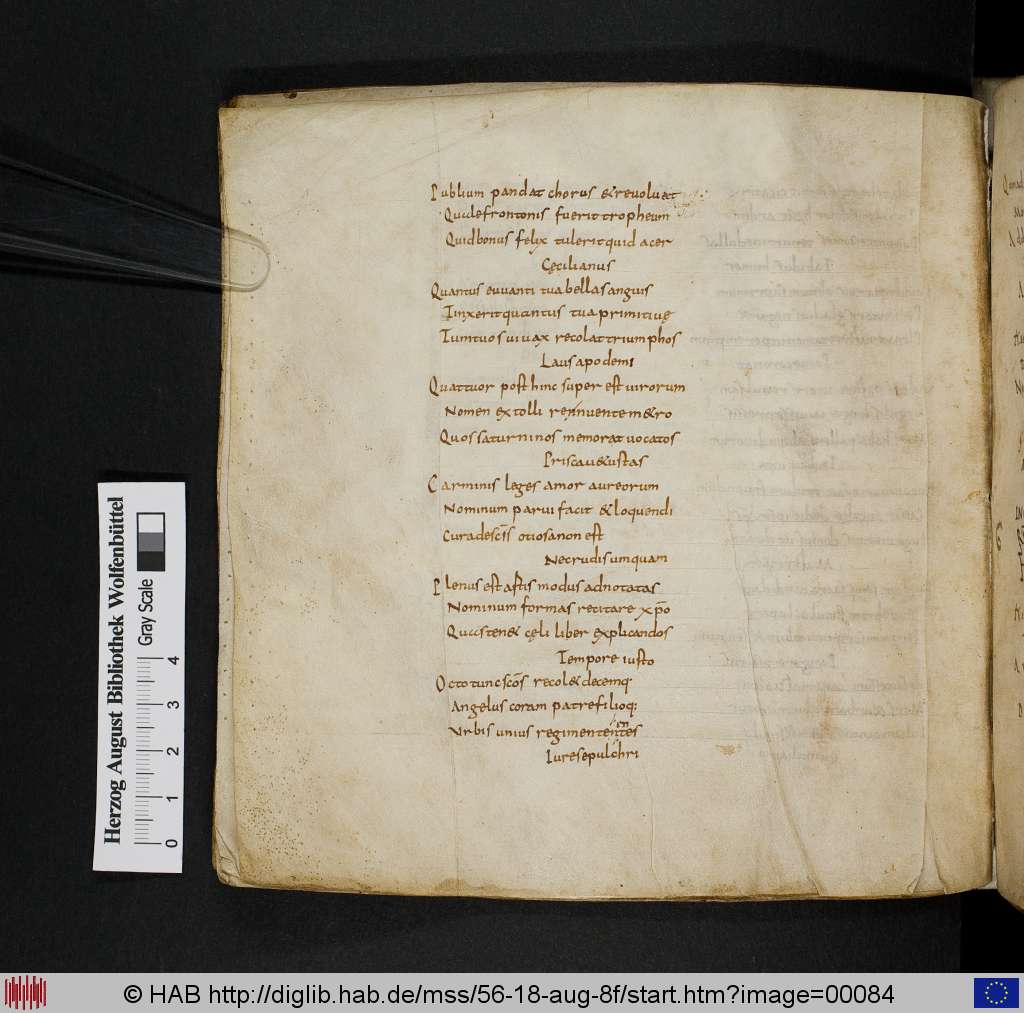 Publium pandat chorus & reuoluat
Quale frontonis fuerit tropheum
Quid bonus felyx tulerit quid acer
Cęcilianus
Quantus euuanti tua bella sanguis
Tinxerit quantus tua primitiuę
Tum tuos uiuax recolat triumphos
Laus apodemi
Quattuor post hinc super est uirorum
Nomen extolli renuente m&ro
Quos saturninos memorat uocatos
Prisca u&ustas
Carminis leges amor aureorum
Nominum parui facit & loquendi
Cura de sc̄is otiosa non est
Nec rudis umquam
Plenus est astis modus ad notatas
Nominum formas recitare xp̄o
Quas ten& cęli liber explicandos
Tempore iusto
Octo tunc sc̄os recol& decemq·
Angelus coram patre filioq:
Vrbis unius regimen tenentes
Iure sepulchri
Herzog August Bibliothek Wolfenbüttel
Gray Scale
0 1 2 3 4
© HAB http://diglib.hab.de/mss/56-18-aug-8f/start.htm?image=00084